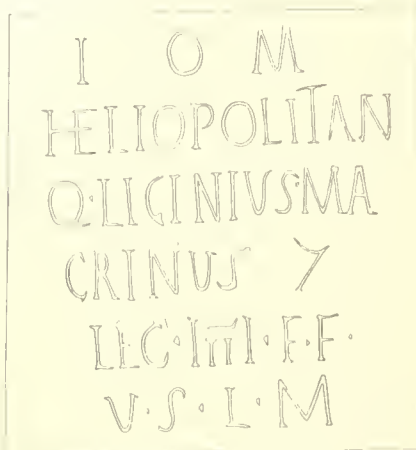 I O M
HELIOPOLITAN
Q·LICINIVS·MA
CRINUS 7
LEG·IIII·F·F·
V·S·L·M